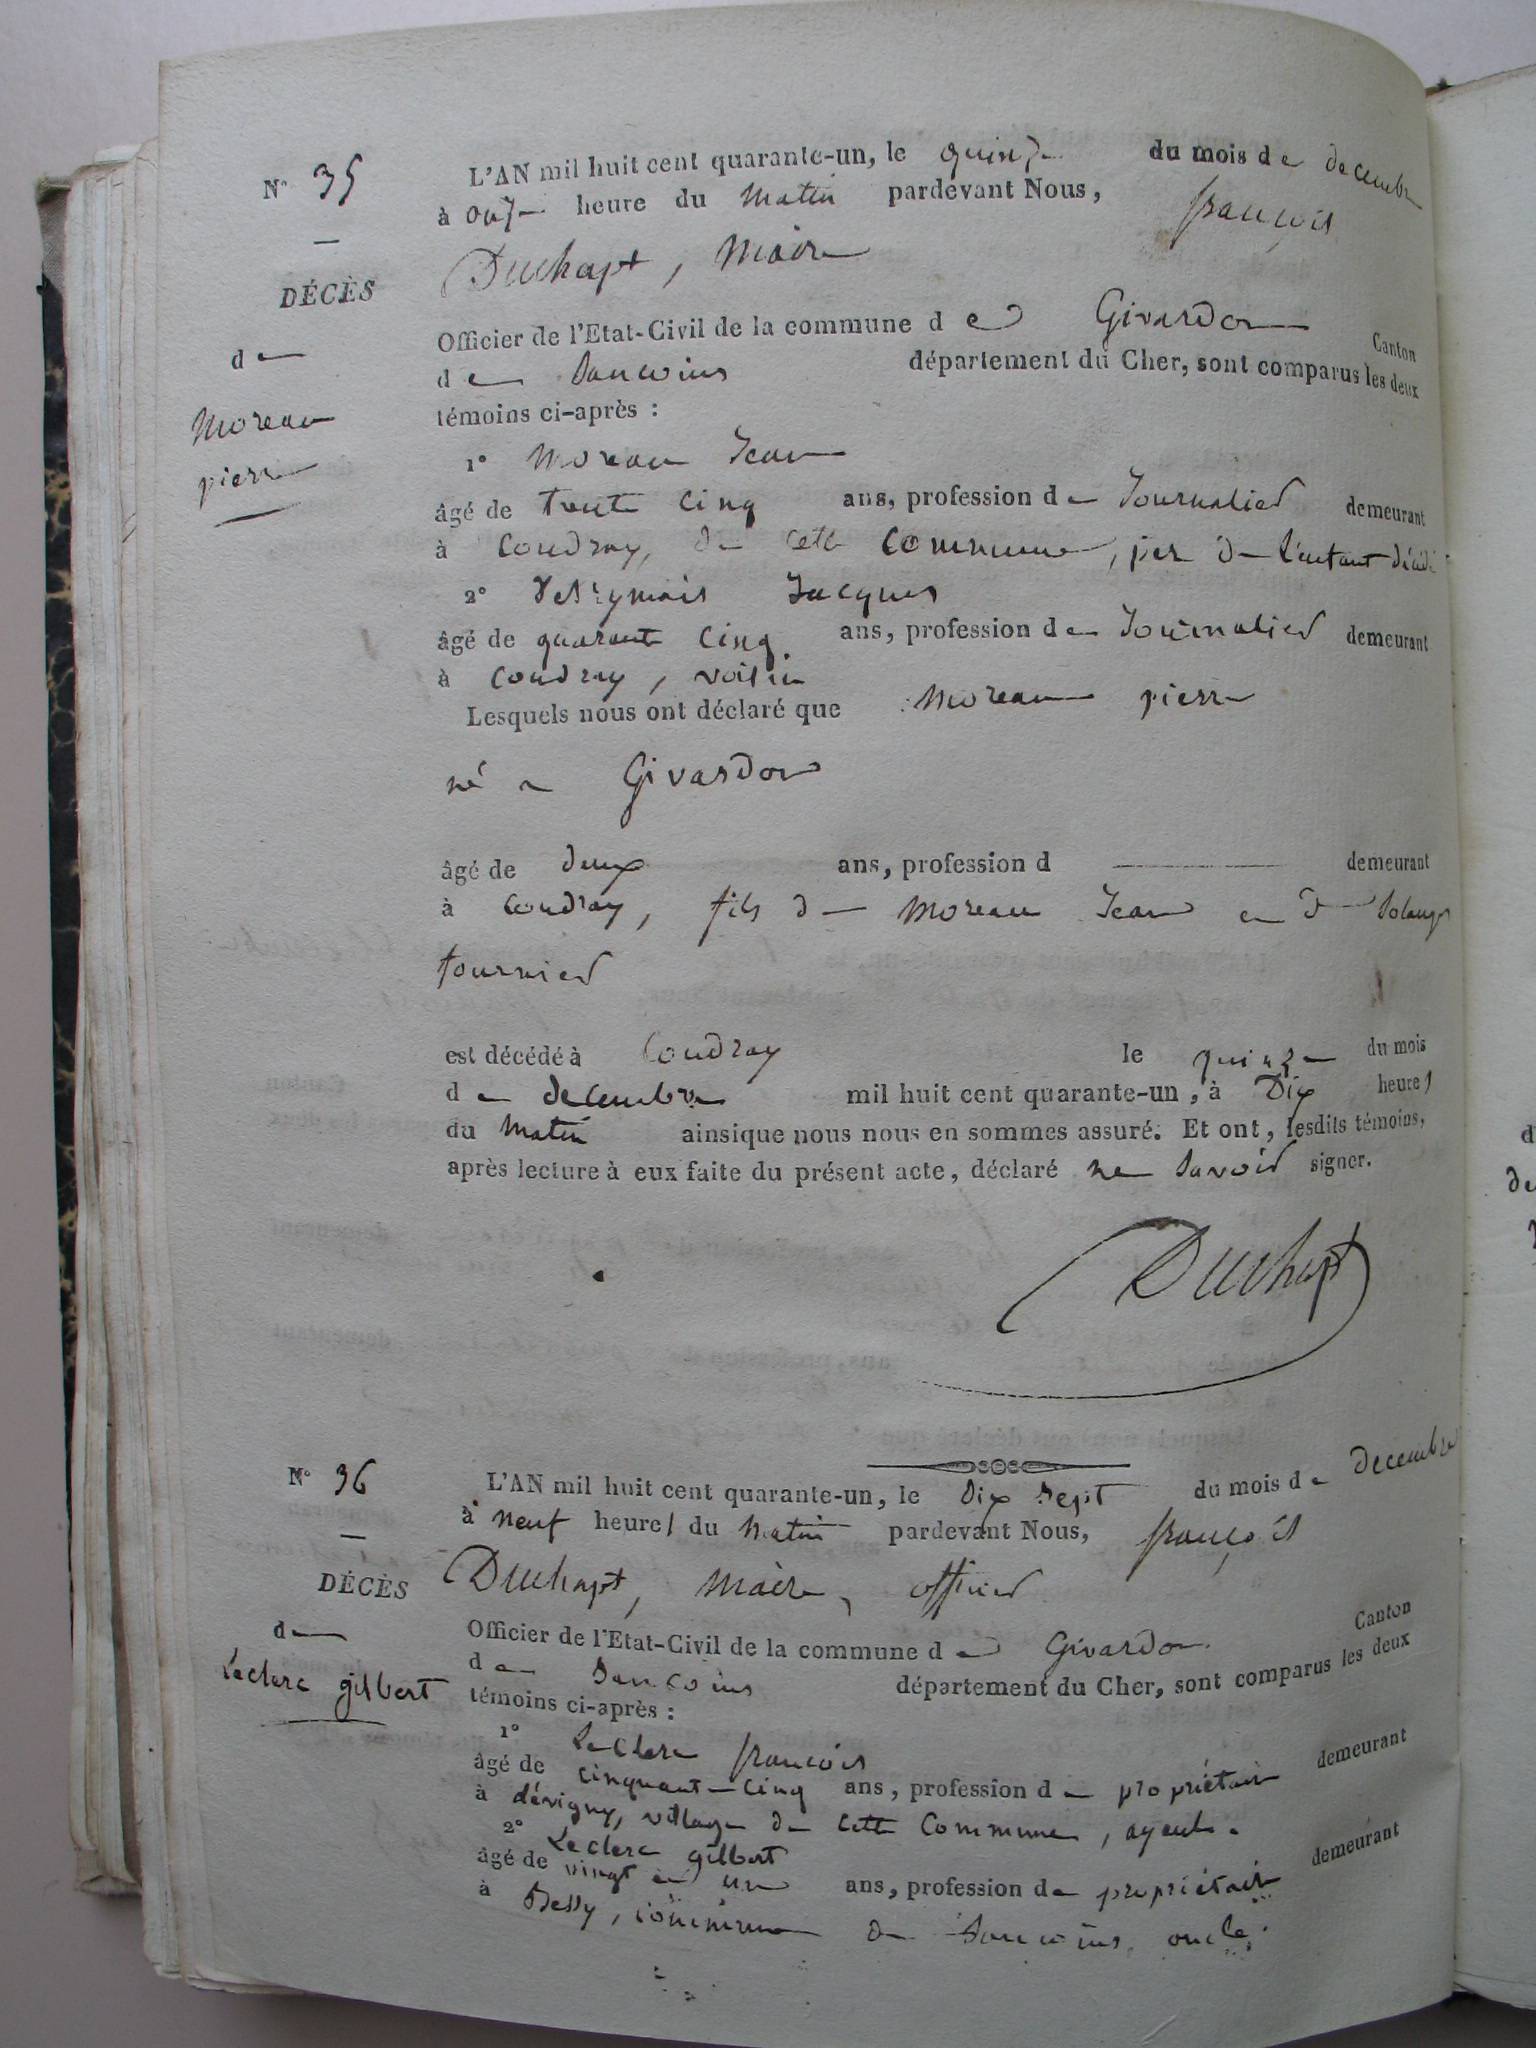 N° 35
L'AN mil huit cent quarante-un, le quinze du mois de decembre
à onze heure du matin pardevant Nous, françois
DÉCÈS
Duchapt, Maire
de
Officier de l'Etat-Civil de la commune de Givardon Canton
de Sancoins département du Cher, sont comparus les deux
Moreau
témoins ci-après :
pierre
1° Moreau Jean
âgé de trente cinq ans, profession de Journalier demeurant
à Coudray, de cette commune, père de l'enfant décédé
2° Jacques
âgé de quarante cinq ans, profession de Journalier demeurant
à Coudray, voisin
Lesquels nous ont déclaré que Moreau pierre
né a Givardon
âgé de deux ans, profession d demeurant
à Coudray, fils de Moreau Jean et de Solange
fournier
est décédé à Coudray le quinze du mois
de decembre mil huit cent quarante-un, à Dix heures
du matin ainsique nous nous en sommes assuré. Et ont, lesdits témoins,
après lecture à eux faite du présent acte, déclaré ne savoir signer.
Duchapt
N° 36
L'AN mil huit cent quarante-un, le dix sept du mois de decembre
à neuf heures du matin pardevant Nous, françois
DÉCÈS
Duchapt, Maire, officier
de
Officier de l'Etat-Civil de la commune de Givardon Canton
Leclerc gilbert
de Sancoins département du Cher, sont comparus les deux
témoins ci-après :
1° Leclerc françois
âgé de cinquante-cinq ans, profession de propriétaire demeurant
à dévigny, village de cette Commune, ayeul.
2° Leclerc gilbert
âgé de vingt et un ans, profession de propriétaire demeurant
à Bessy, commune de Sancoins, oncle.